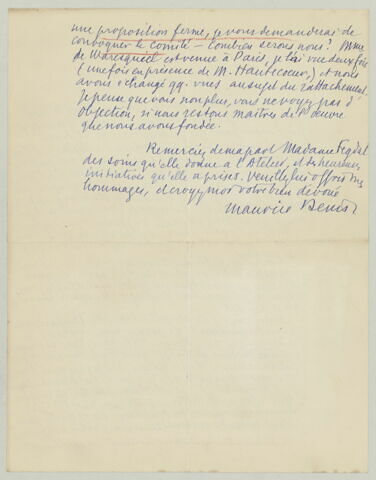 une proposition ferme, je vous demanderai de
convoquer le Comité – Combien serons nous ? Mme
de Waresquiel est venue à Paris, je l'ai vue deux fois
(une fois en présence de M. Hautecoeur,) et nous
avons échangé qq. vues au sujet du rattachement.
je pense que vous non plus, vous ne voyez pas d'
objection, si nous restons maîtres de l'oeuvre
que nous avons fondée.
Remerciez de ma part Madame Fegdal
des soins qu'elle donne à l'Atelier, et des heureuses
initiatives qu'elle a prises. Veuillez lui offrir mes
hommages, et croyez moi votre bien dévoué
Maurice Denis